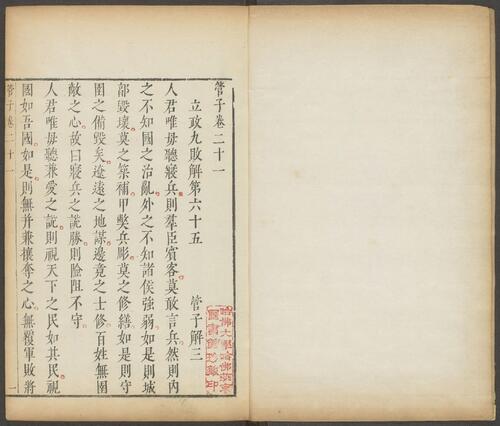 管子卷二十一
立政九敗解第六十五
管子解三
人君唯毋聽寢兵則羣臣賓客莫敢言兵然則內
之不知國之治亂外之不知諸侯強弱如是則城
郭毀壞莫之築補甲獘兵彫莫之修繕如是則守
圉之備毀矣遼遠之地謀邊竟之士修百姓無圉
敵之心故曰寢兵之說勝則險阻不守
人君唯毋聽兼愛之說則視天下之民如其民視
國如吾國如是則無并兼攘奪之心無覆軍敗將
管子卷二十一
一
哈佛大學哈佛燕京
圖書館珍藏印